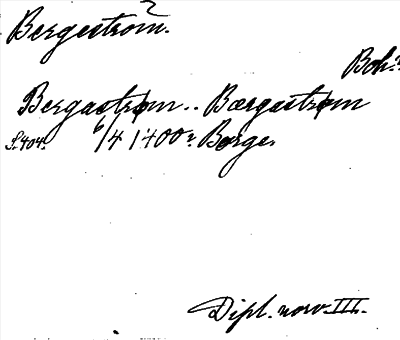 Bergeström.
Boh.
Bergastrøm.. Bærgastrøm
S. 404. 6/4 1400. Borge.
Dipl. norv. III.